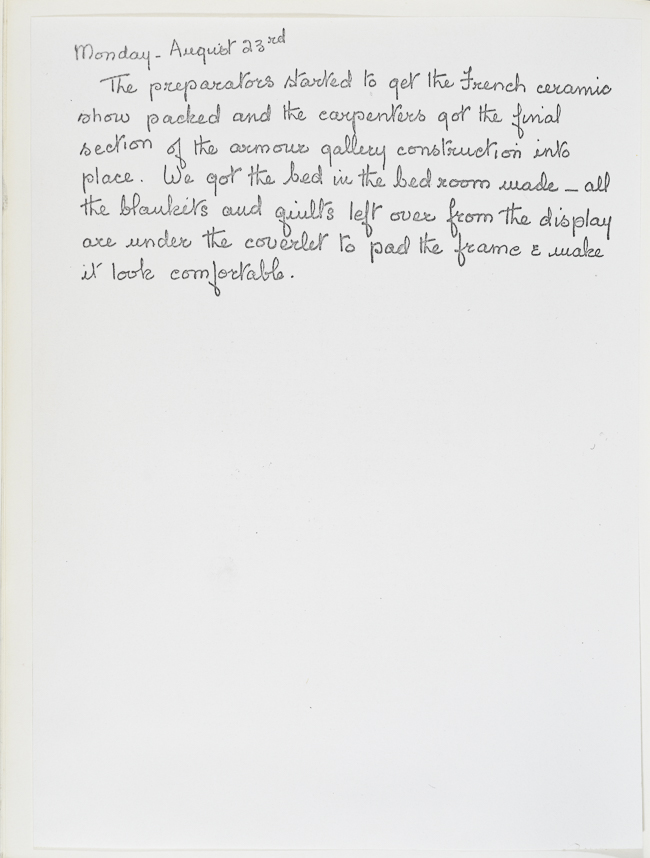 Monday - August 23rd
The preparators started to get the French ceramic
show packed and the carpenters got the final
section of the armour gallery construction into
place. We got the bed in the bedroom made - all
the blankets and quilts left over from the display
are under the coverlet to pad the frame & make
it look comfortable.